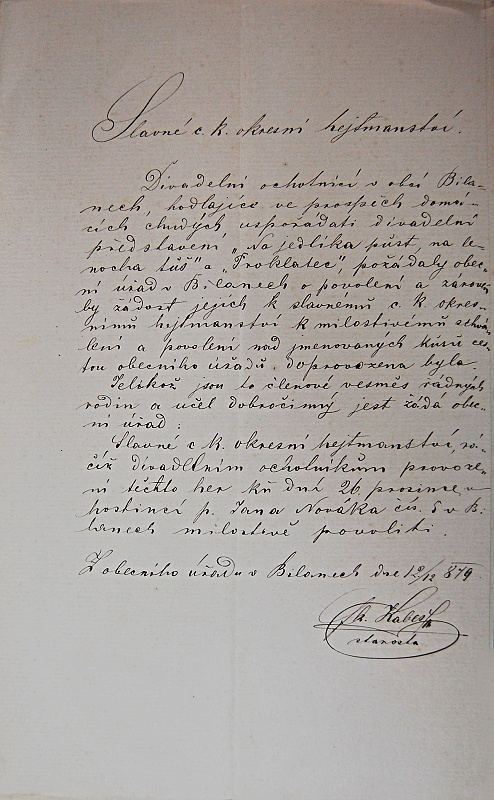 Slavné c. k. okresní hejtmanství.
Divadelní ochotníci v obci Bíla-
nech, hodlajíce ve prospěch domá-
cích chudých uspořádati divadelní
představení „Na jedlíka půst, na le-
nocha tůš" a „Proklatec", požádaly obec-
ní úřad v Bílanech o povolení a zárov
by žádost jejich k slavnému c. k. okres-
nímu hejtmanství k milostivému schvá-
lení a povolení nad jmenovaných kusů ces-
tou obecního úřadu doprovozena byla.
Jelikož jsou to členové vesměs řádných
rodin a účel dobročinný jest žádá obec-
ní úřad:
Slavné c. k. okresní hejtmanství, rá-
číž divadelním ochotníkům provoze-
ní těchto her ku dni 26. prosince v
hostinci p. Jana Nováka čís. 5 v B.
lanech milostivě povoliti.
Z obecního úřadu v Bilanech dne 12/12 879
starosta